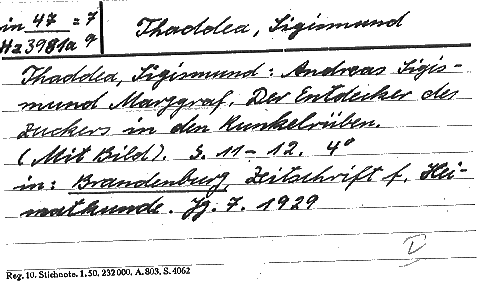 in 47 = 7
Hz 3981a 9
Thaddea, Sigismund
Thaddea, Sigismund: Andreas Sigis-
mund Marggraf. Der Entdecker des
Zuckers in den Runkelrüben.
(Mit Bild). S. 11-12. 4°
in: Brandenburg, Zeitschrift f. Hei-
matkunde. Jg. 7. 1929
D
Reg. 10. Stichnote. 1. 50. 232000. A. 803. S. 4062